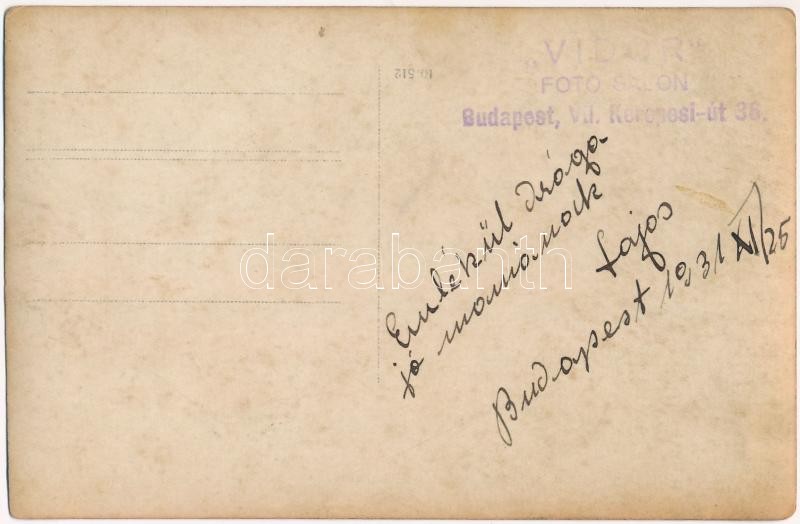 „VIDOR"
FOTO SALON
Budapest, VII. Kerepesi-út 36.
10.512
Emlékül drága
jó mamának
Lajos
Budapest 1931 XI/25
darabanth